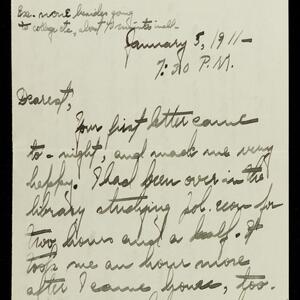 Exe. none besides going
to college etc, about 15 minutes in all-
January 5, 1911-
7:30 P.M.
Dearest,
Your first letter came
to-night, and made me very
happy. I had been over in the
library studying Pol. econ for
two hours and a half. It
took me an hour more
after I came home, too.